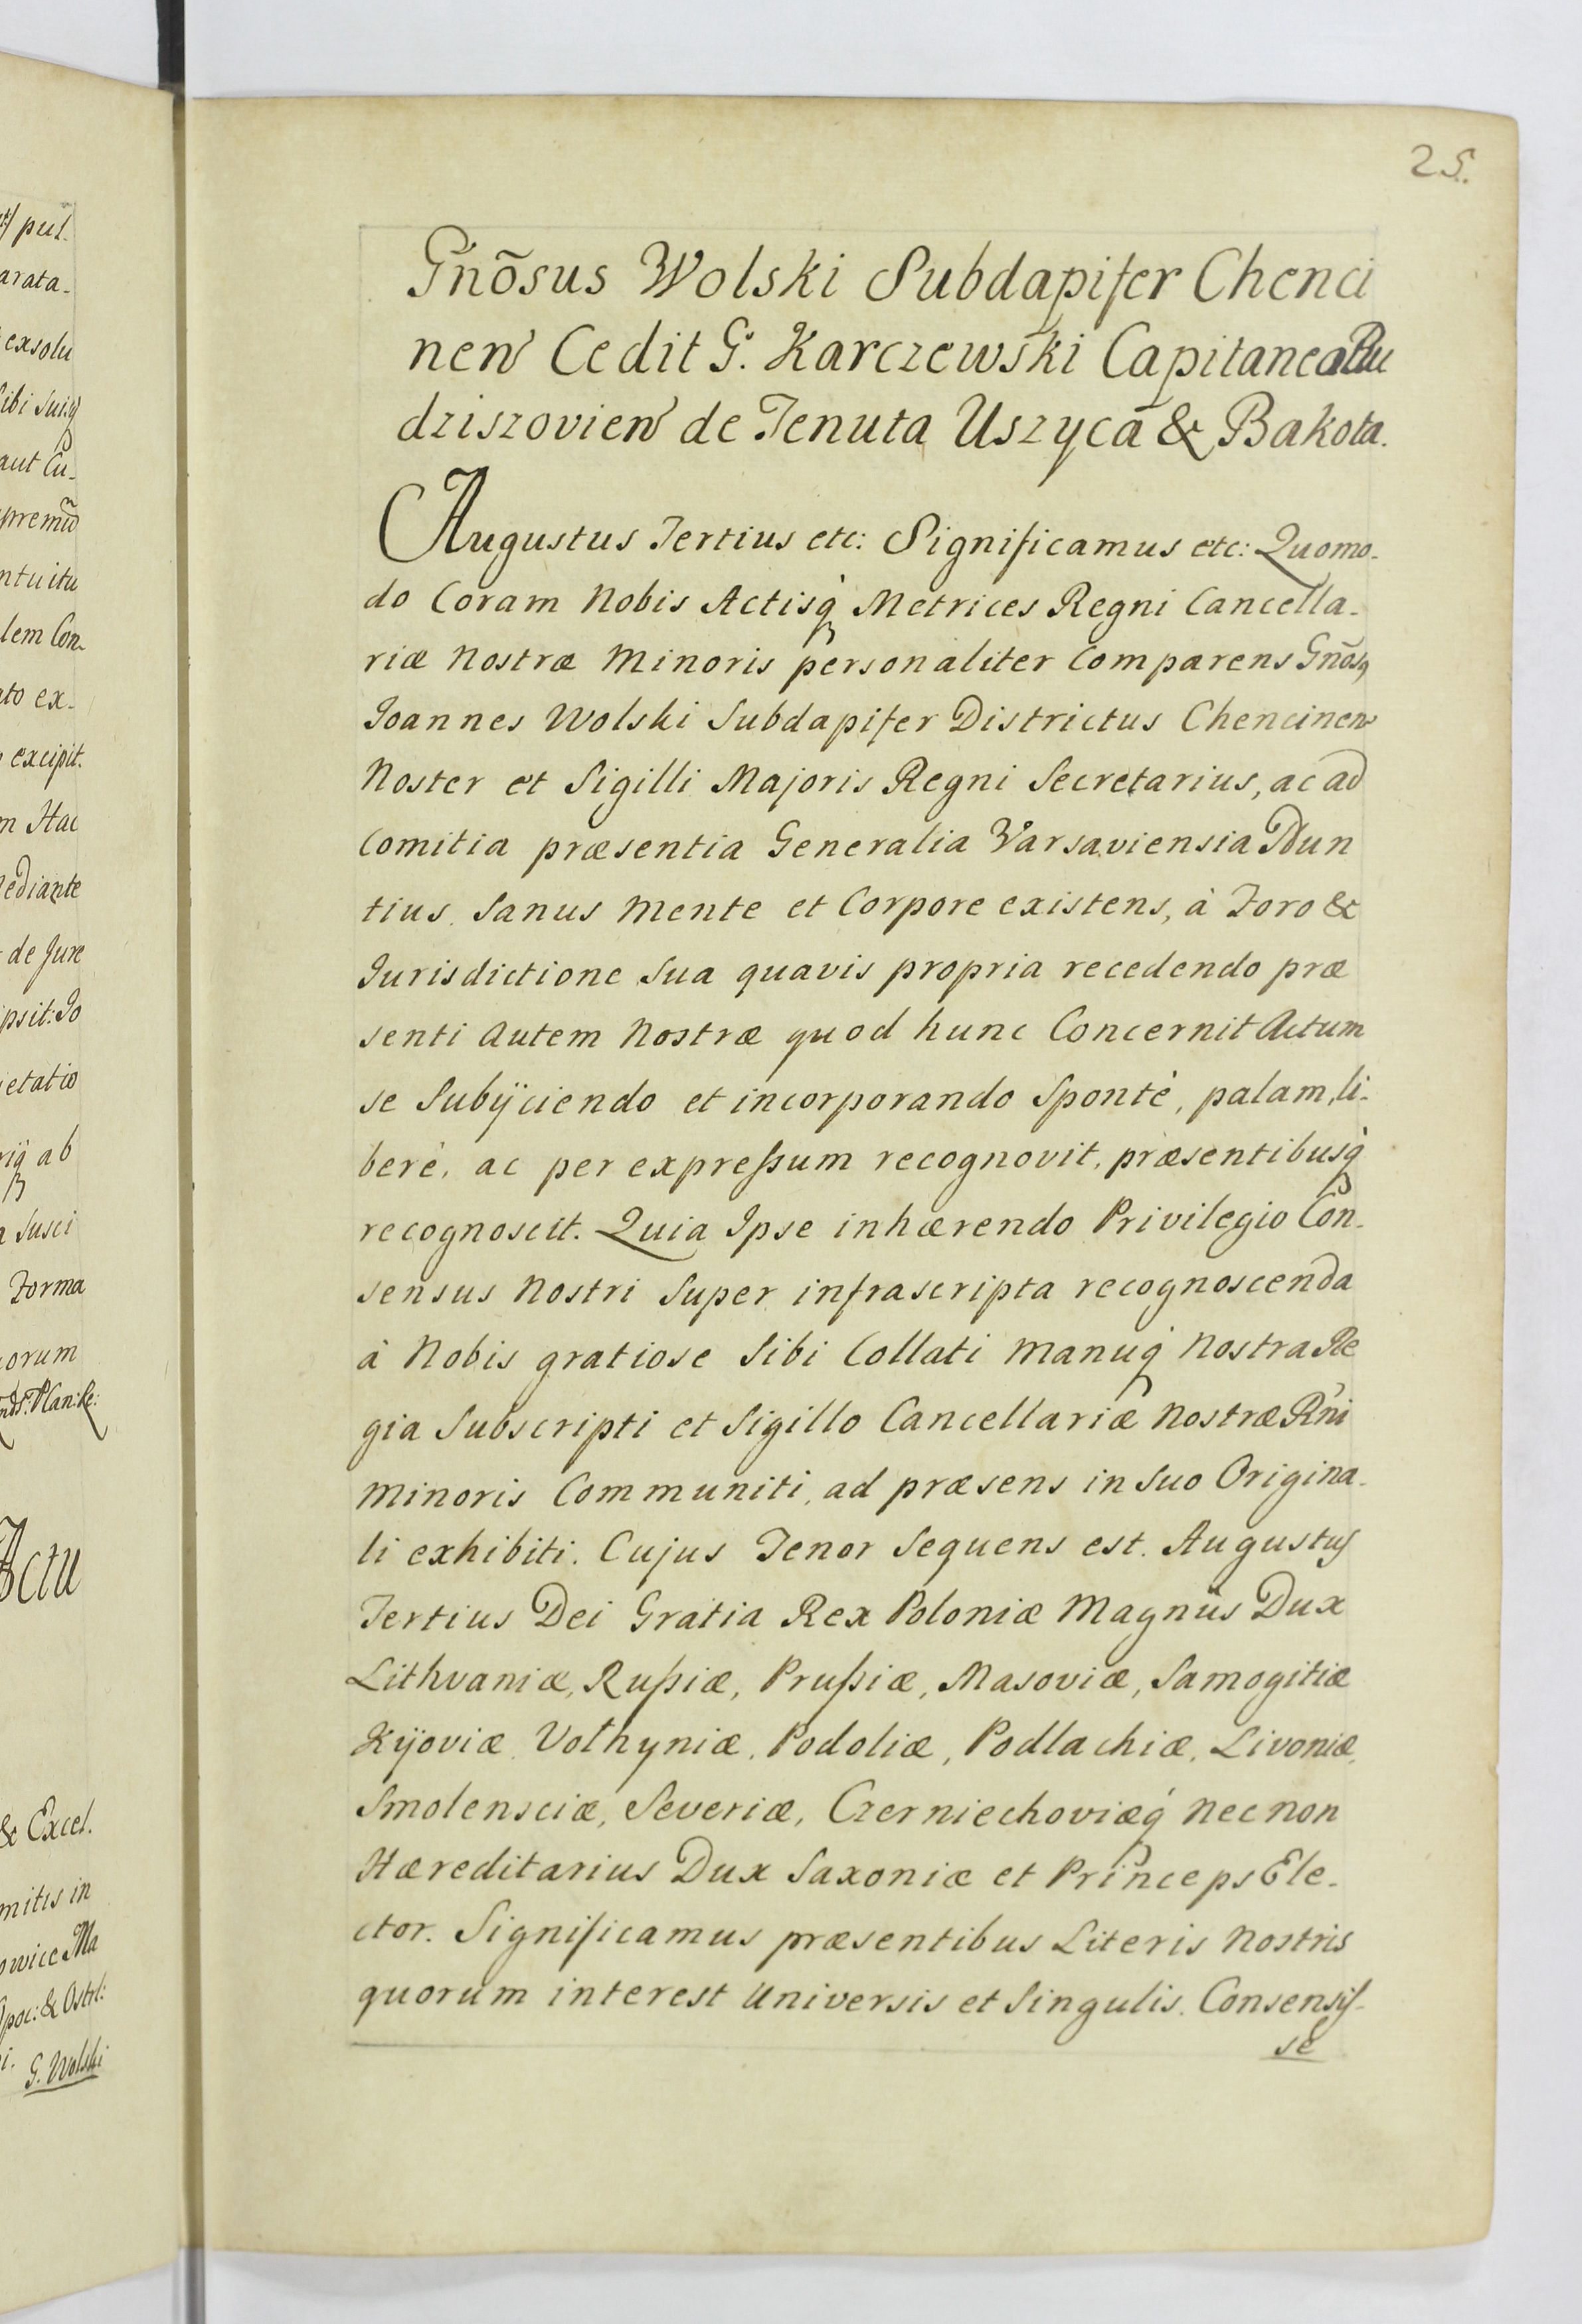 pul.
arata-
exsolu
sibi suisq
aut Cu-
ntuitu
lem Con-
ato ex-
excipit.
m Hac
Mediante
de Jure
ipsit: Jo
ietatio
ab
susci
Forma
orum
Actu
& Excel.
mitis in
owice Ma
& Ostrl:
G. Wolski
25.
Gnõsus Wolski Subdapifer Chenci
nen Cedit G. Karczewski Capitaneo Bu
dziszovien de Tenuta Uszyca & Bakota.
Augustus Tertius etc: Significamus etc: Quomo-
do Coram Nobis Actisq Metrices Regni Cancella-
riæ Nostræ Minoris personaliter Comparens Gnõsq
Joannes Wolski Subdapifer Districtus Chencinen
Noster et Sigilli Majoris Regni Secretarius, ac ad
Comitia præsentia Generalia Varsaviensia Nun
tius Sanus mente et Corpore existens, à Foro &
Jurisdictione Sua quavis propria recedendo præ
senti autem Nostræ quod hunc Concernit Actum
se Subijciendo et incorporando Spontè, palam, li-
berè, ac per expressum recognovit, præsentibusq
recognoscit. Quia Ipse inhærendo Privilegio Con-
sensus Nostri Super infrascripta recognoscenda
à Nobis gratiose Sibi Collati manuq Nostra Re
gia Subscripti et Sigillo Cancellariæ Nostræ Rni
Minoris Communiti, ad præsens in Suo Origina-
li exhibiti. Cujus Tenor Sequens est. Augustus
Tertius Dei Gratia Rex Poloniæ Magnus Dux
Lithvaniæ, Russiæ, Prussiæ, Masoviæ, Samogitiæ
Kijoviæ, Volhyniæ, Podoliæ, Podlachiæ, Livoniæ,
Smolensciæ, Severiæ, Czerniechoviæq necnon
Hæreditarius Dux Saxoniæ et Princeps Ele-
ctor. Significamus præsentibus Literis Nostris
quorum interest Universis et Singulis. Consensis-
se